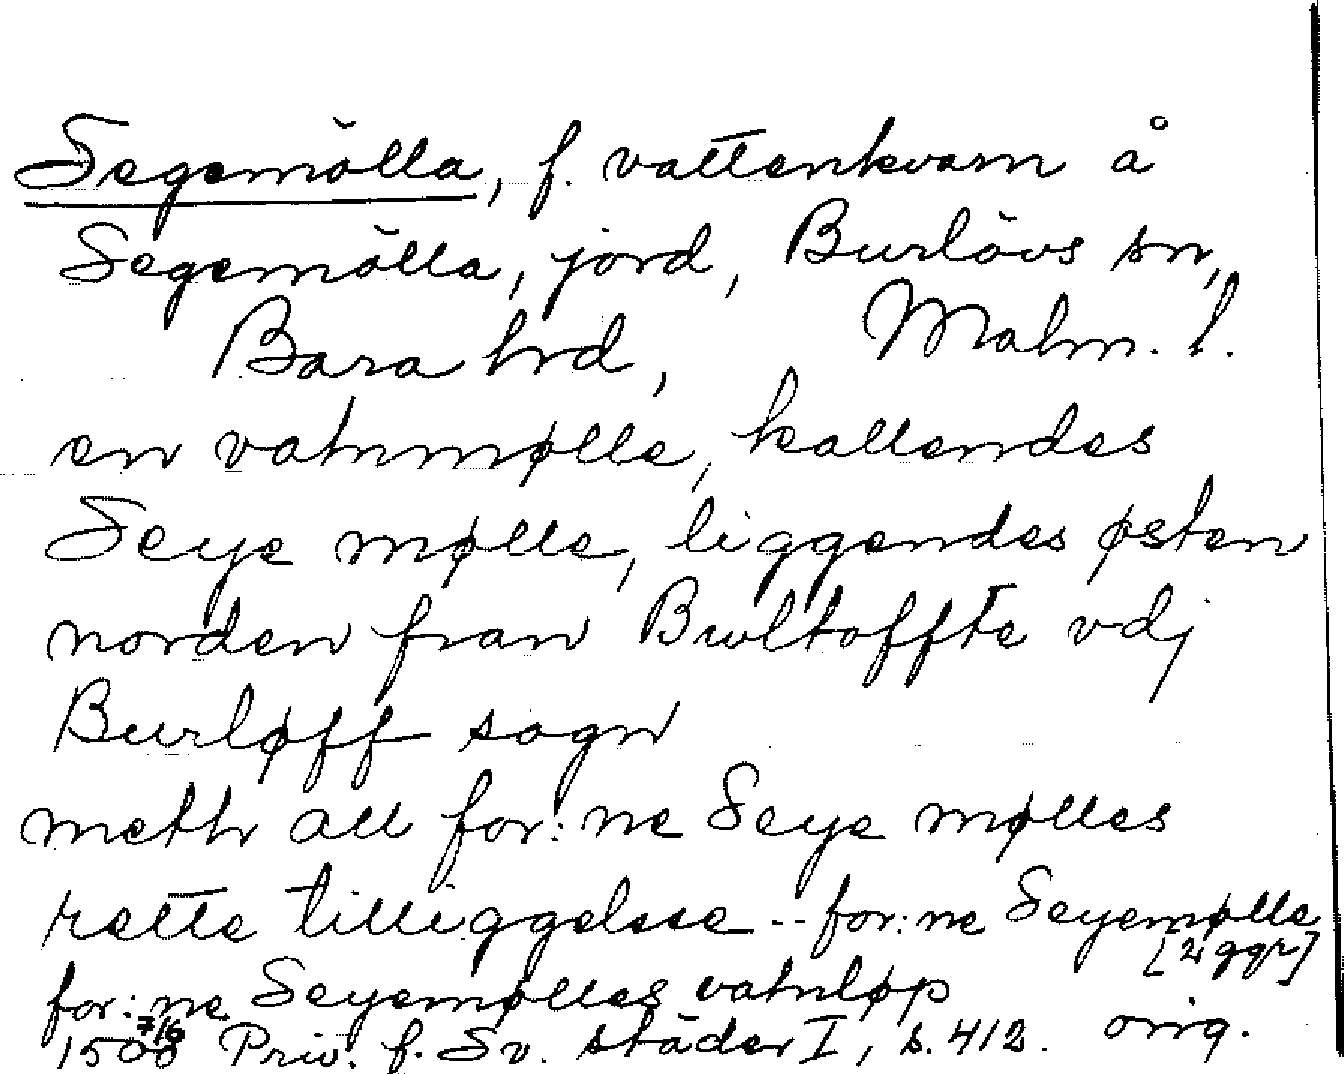 Segemölla, f. vattenkvarn å
Segemölla, jord, Burlövs sn,
Bara hrd, Malm. l.
en vatnmølle, kallendes
Seye mølle, liggendes østen
norden fran Bwltoffte vdj
Burløff sogn
meth all for:ne Seye mølles
rette tilliggelse -- for:ne Seyemølle
[2 ggr]
for:ne Seyemølles vatnløp
1508 7/6 Priv. f. Sv. städer I, s. 412. orig.